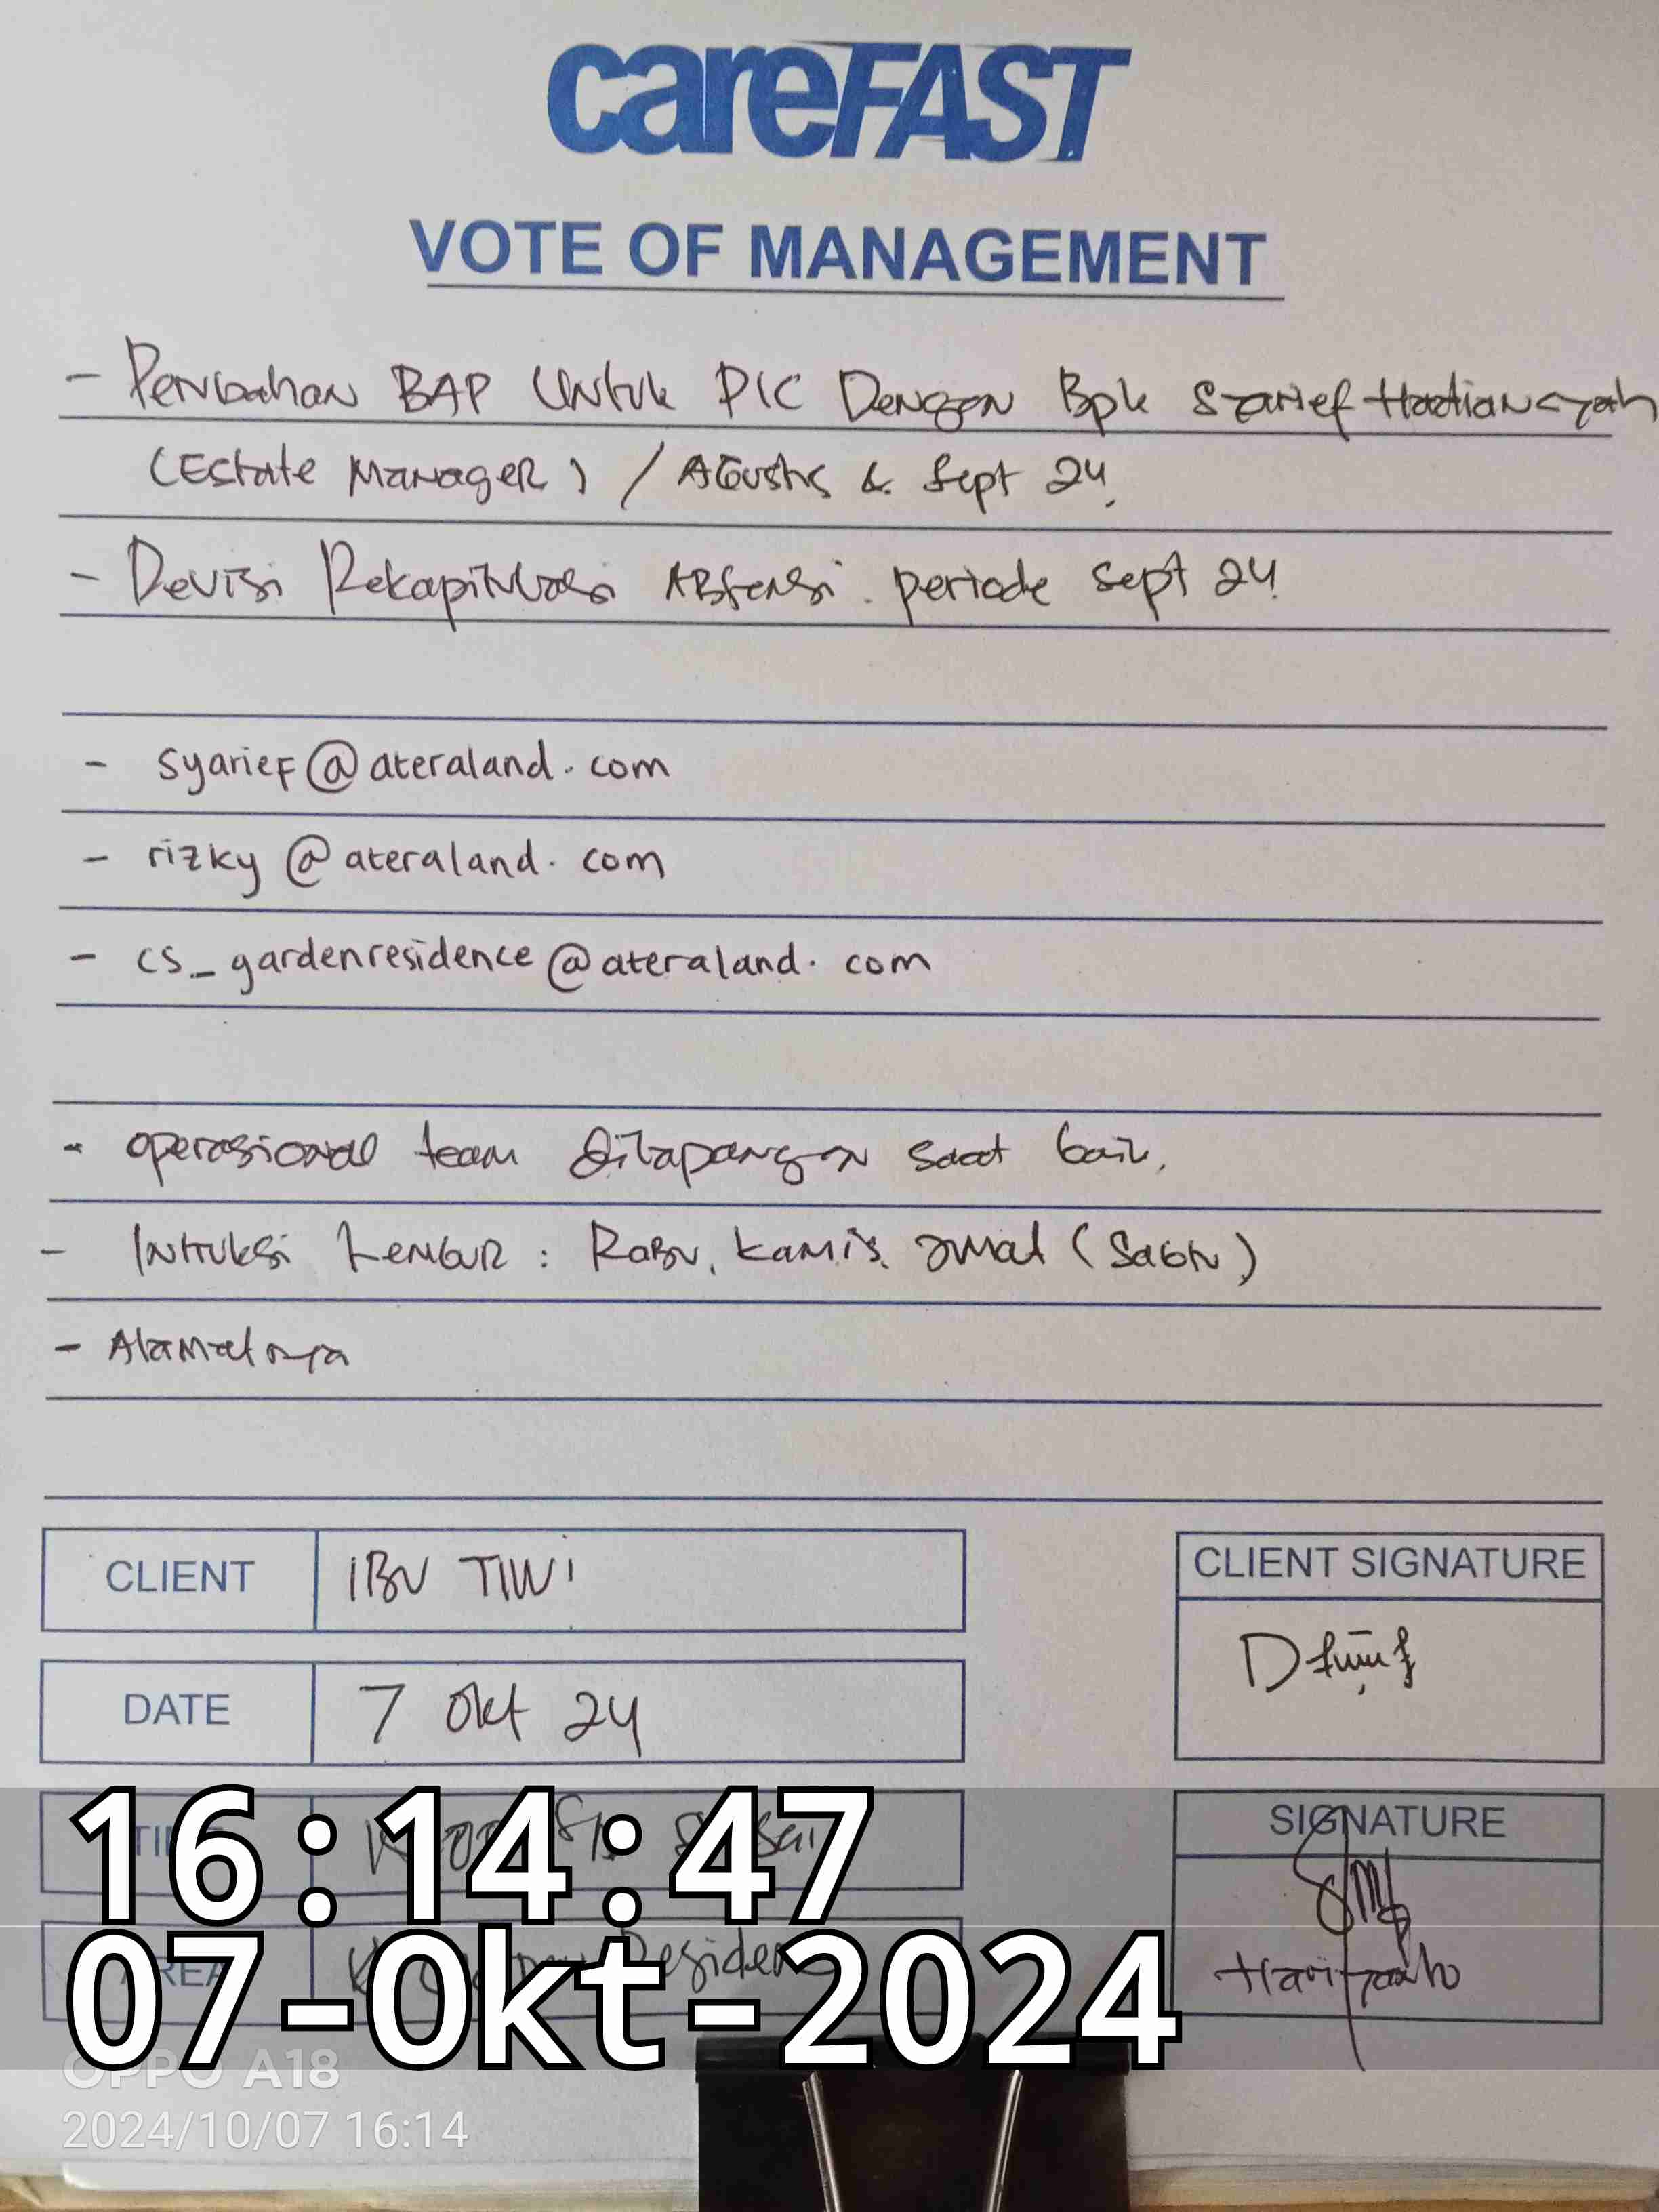 careFAST
VOTE OF MANAGEMENT
- Perubahan BAP Untuk PIC Dengan Bpk Syarief Hadiansyah
(Estate Manager) / Agustus & Sept 24.
- Devisi Rekapitulasi Absensi. periode Sept 24.
- syarief@ateraland.com
- rizky@ateraland.com
- cs_gardenresidence@ateraland.com
- operasional team dilapangan saat baik.
- Intruksi Lembur : Rabu, Kamis, Jumat (Sabtu)
- Alamatnya
CLIENT IBU TIWI
CLIENT SIGNATURE
DATE 7 Okt 24
TIME
SIGNATURE
16:14:47
AREA Residen
Hariyanto
07-Okt-2024
OPPO A18
2024/10/07 16:14